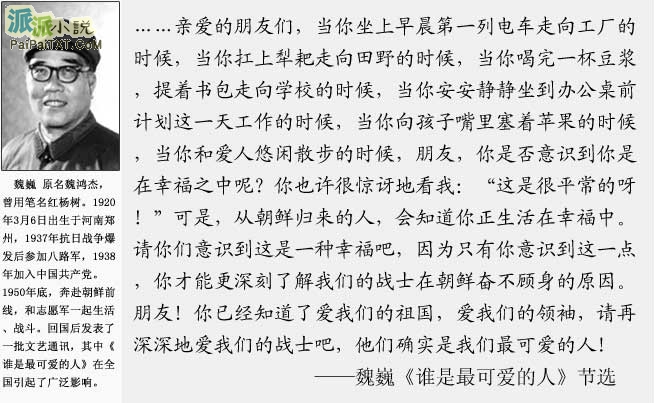 派派小說
PaiPaiTXT.COM
魏巍 原名魏鸿杰，
曾用笔名红杨树。1920
年3月6日出生于河南郑
州，1937年抗日战争爆
发后参加八路军，1938
年加入中国共产党。
1950年底，奔赴朝鲜前
线，和志愿军一起生活
、战斗。回国后发表了
一批文艺通讯，其中《
谁是最可爱的人》在全
国引起了广泛影响。
……亲爱的朋友们，当你坐上早晨第一列电车走向工厂的
时候，当你扛上犁耙走向田野的时候，当你喝完一杯豆浆
，提着书包走向学校的时候，当你安安静静坐到办公桌前
计划这一天工作的时候，当你向孩子嘴里塞着苹果的时候
，当你和爱人悠闲散步的时候，朋友，你是否意识到你是
在幸福之中呢？你也许很惊讶地看我：“这是很平常的呀
！”可是，从朝鲜归来的人，会知道你正生活在幸福中。
请你们意识到这是一种幸福吧，因为只有你意识到这一点
，你才能更深刻了解我们的战士在朝鲜奋不顾身的原因。
朋友！你已经知道了爱我们的祖国，爱我们的领袖，请再
深深地爱我们的战士吧，他们确实是我们最可爱的人！
——魏巍《谁是最可爱的人》节选